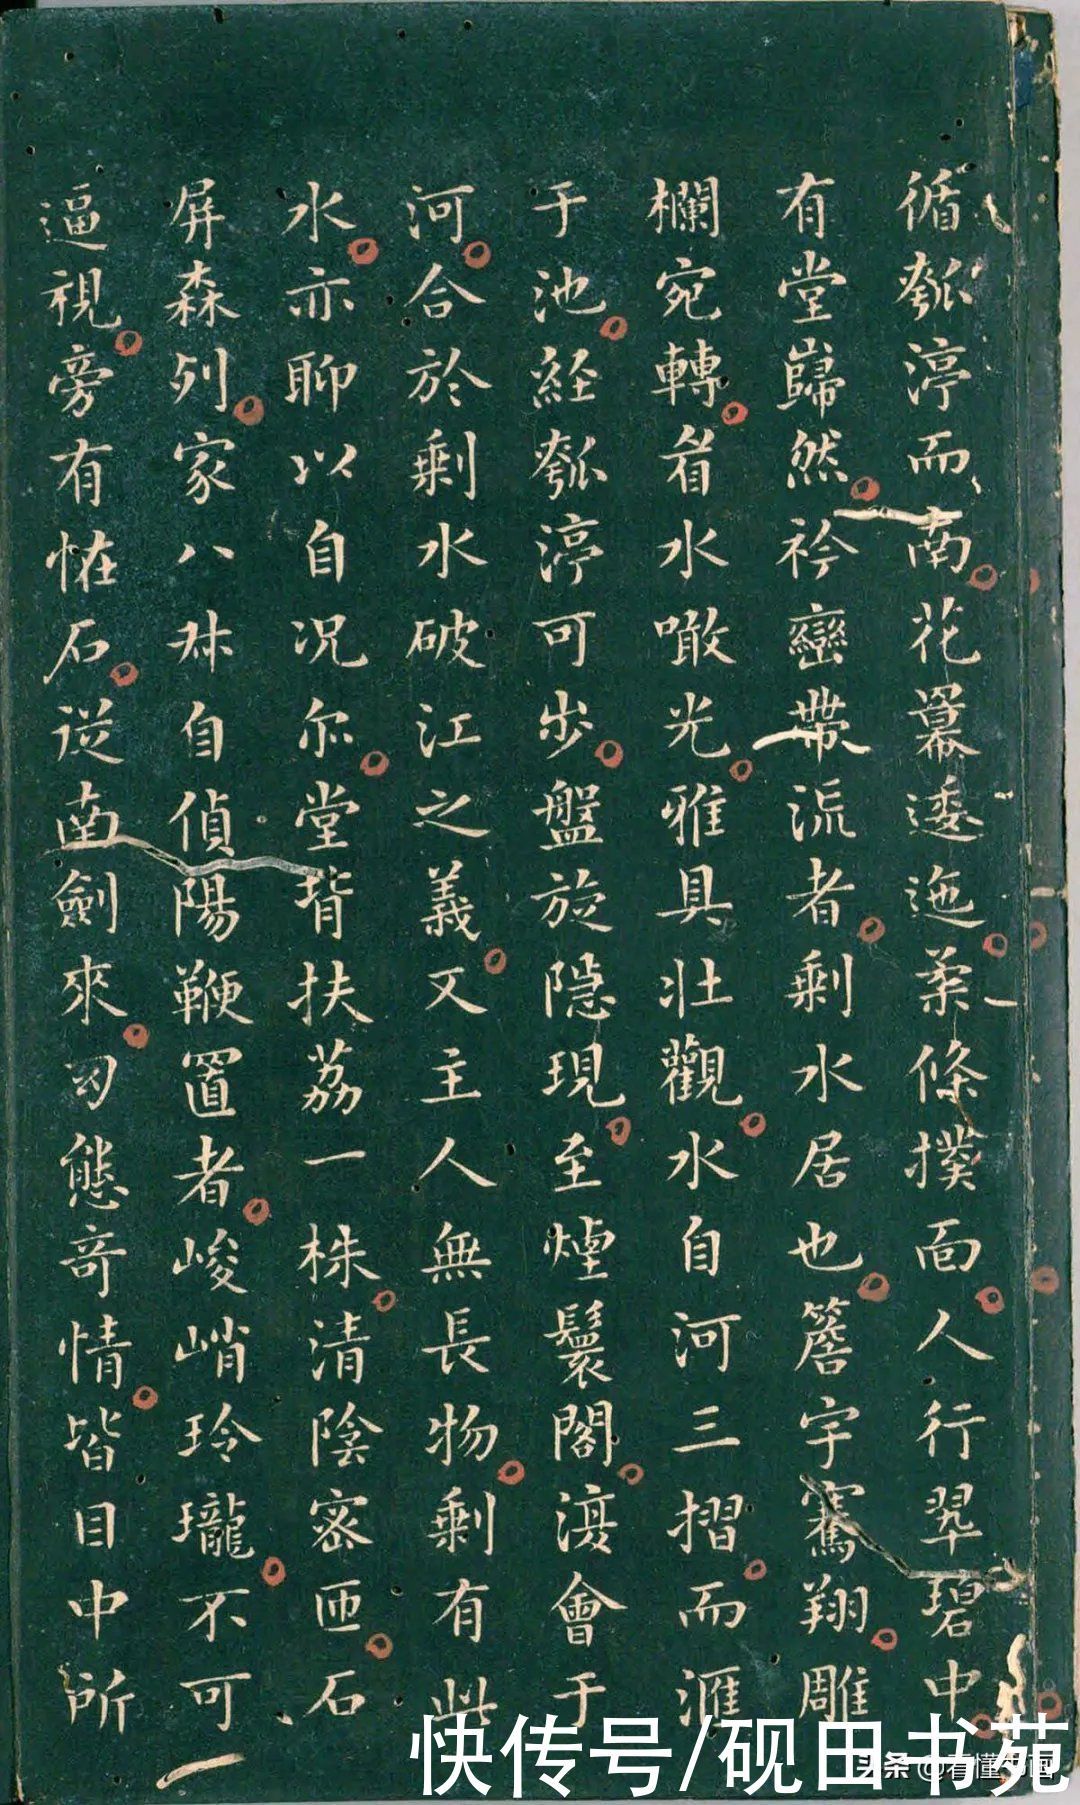 循瓠渟而南花冪逶迤柔條撲面人行翠碧中
有堂巋然衿巒帶流者剩水居也簷宇騫翔雕
欄宛轉看水噉光雅具壯觀水自河三摺而滙
于池経瓠渟可步盤旋隐現至煙鬟閣渡會于
河合於剩水破江之義又主人無長物剩有此
水亦聊以自况尔堂背扶荔一株清陰宻匝石
屏森列家八叔自偵陽鞭置者峻峭玲瓏不可
逼視旁有恠石從南劍來幻態竒情皆目中所
快传号/砚田书苑
头条 @看懂书画